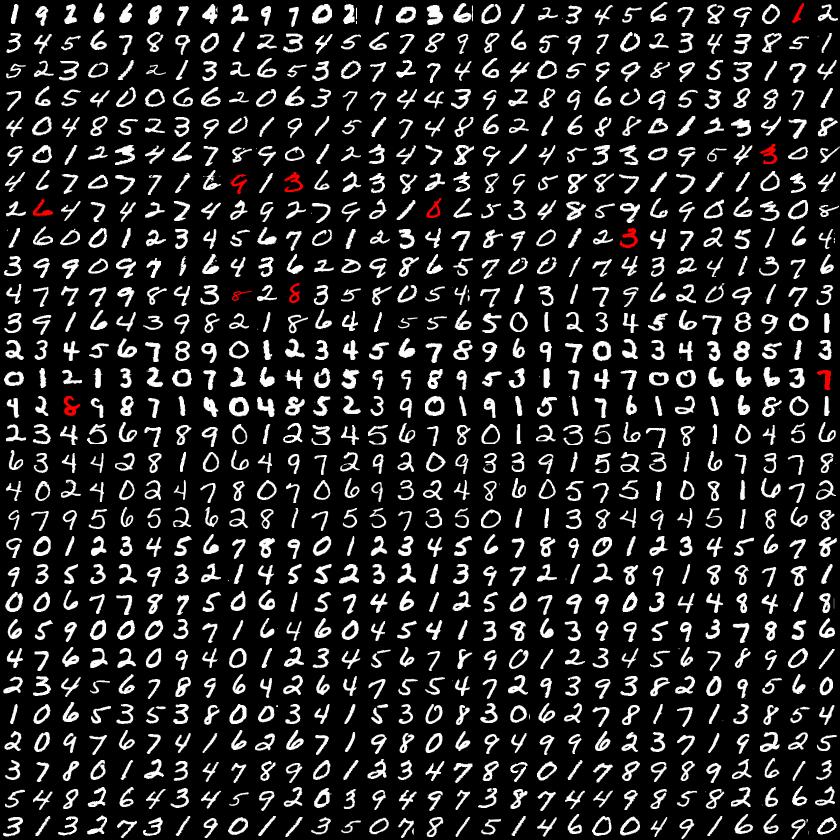 1 9 2 6 6 8 7 4 2 9 7 0 2 1 0 3 6 0 1 2 3 4 5 6 7 8 9 0 1 2
3 4 5 6 7 8 9 0 1 2 3 4 5 6 7 8 9 8 6 5 9 7 0 2 3 4 3 8 5 1
5 2 3 0 1 2 1 3 2 6 5 3 0 7 2 7 4 6 4 0 5 9 9 8 9 5 3 1 7 4
7 6 5 4 0 0 6 6 2 0 6 3 7 7 4 4 3 9 2 8 9 6 0 9 5 3 8 8 7 1
4 0 4 8 5 2 3 9 0 1 9 1 5 1 7 4 8 6 2 1 6 8 8 0 1 2 3 4 7 8
9 0 1 2 3 4 6 7 8 9 0 1 2 3 4 7 8 9 1 4 5 3 3 0 9 5 4 3 0 8
4 6 7 0 7 7 1 6 9 1 3 6 2 3 8 2 3 8 9 5 8 8 7 1 7 1 1 0 3 4
2 6 4 7 4 2 7 4 2 9 2 7 9 2 1 0 6 5 3 4 8 5 9 6 9 0 6 3 0 8
1 6 0 0 1 2 3 4 5 6 7 0 1 2 3 4 7 8 9 0 1 2 3 4 7 2 5 1 6 4
3 9 9 0 9 7 1 6 4 3 6 2 0 9 8 6 5 7 0 0 1 7 4 3 2 4 1 3 7 6
4 7 7 7 9 8 4 3 8 2 8 3 5 8 0 5 4 7 1 3 1 7 9 6 2 0 9 1 7 3
3 9 1 6 4 3 9 8 2 1 8 6 4 1 5 5 6 5 0 1 2 3 4 5 6 7 8 9 0 1
2 3 4 5 6 7 8 9 0 1 2 3 4 5 6 7 8 9 6 9 7 0 2 3 4 3 8 5 1 3
0 1 2 1 3 2 0 7 2 6 4 0 5 9 9 8 9 5 3 1 7 4 7 0 0 6 6 6 3 7
4 2 8 9 8 7 1 4 0 4 8 5 2 3 9 0 1 9 1 5 1 7 6 1 2 1 6 8 0 1
2 3 4 5 6 7 8 9 0 1 2 3 4 5 6 7 8 0 1 2 3 5 6 7 8 1 0 4 5 6
6 3 4 4 2 8 1 0 6 4 9 7 2 9 2 0 9 3 3 9 1 5 2 3 1 6 7 3 7 8
4 0 2 4 0 2 4 7 8 0 7 0 6 9 3 2 4 8 6 0 5 7 5 1 0 8 1 6 7 2
9 7 9 5 6 5 2 6 2 8 1 7 5 5 7 3 5 0 1 1 3 8 4 9 4 5 1 8 6 8
9 0 1 2 3 4 5 6 7 8 9 0 1 2 3 4 5 6 7 8 9 0 1 2 3 4 5 6 7 8
9 3 5 3 2 9 3 2 1 4 5 5 2 3 2 1 3 9 7 2 1 2 8 9 1 8 8 7 8 1
0 0 6 7 7 8 7 5 0 6 1 5 7 4 6 1 2 5 0 7 9 9 0 3 4 4 8 4 1 8
6 5 9 0 0 0 3 7 1 6 4 6 0 4 5 4 1 3 8 6 3 9 9 5 9 3 7 8 5 6
4 7 6 2 2 0 9 4 0 1 2 3 4 5 6 7 8 9 0 1 2 3 4 5 6 7 8 9 0 1
2 3 4 5 6 7 8 9 6 4 2 6 4 7 5 5 4 7 2 9 3 9 3 8 2 0 9 5 6 0
1 0 6 5 3 5 3 8 0 0 3 4 1 5 3 0 8 3 0 6 2 7 8 1 7 1 3 8 5 4
2 0 9 7 6 7 4 1 6 2 6 7 1 9 8 0 6 9 4 9 9 6 2 3 7 1 9 2 2 5
3 7 8 0 1 2 3 4 7 8 9 0 1 2 3 4 7 8 9 0 1 7 8 9 8 9 2 6 1 3
5 4 8 2 6 4 3 4 5 9 2 0 3 9 4 9 7 3 8 7 4 4 9 8 5 8 2 6 6 2
3 1 3 2 7 3 1 9 0 1 1 3 5 0 7 8 1 5 1 4 6 0 0 4 9 1 6 6 9 0